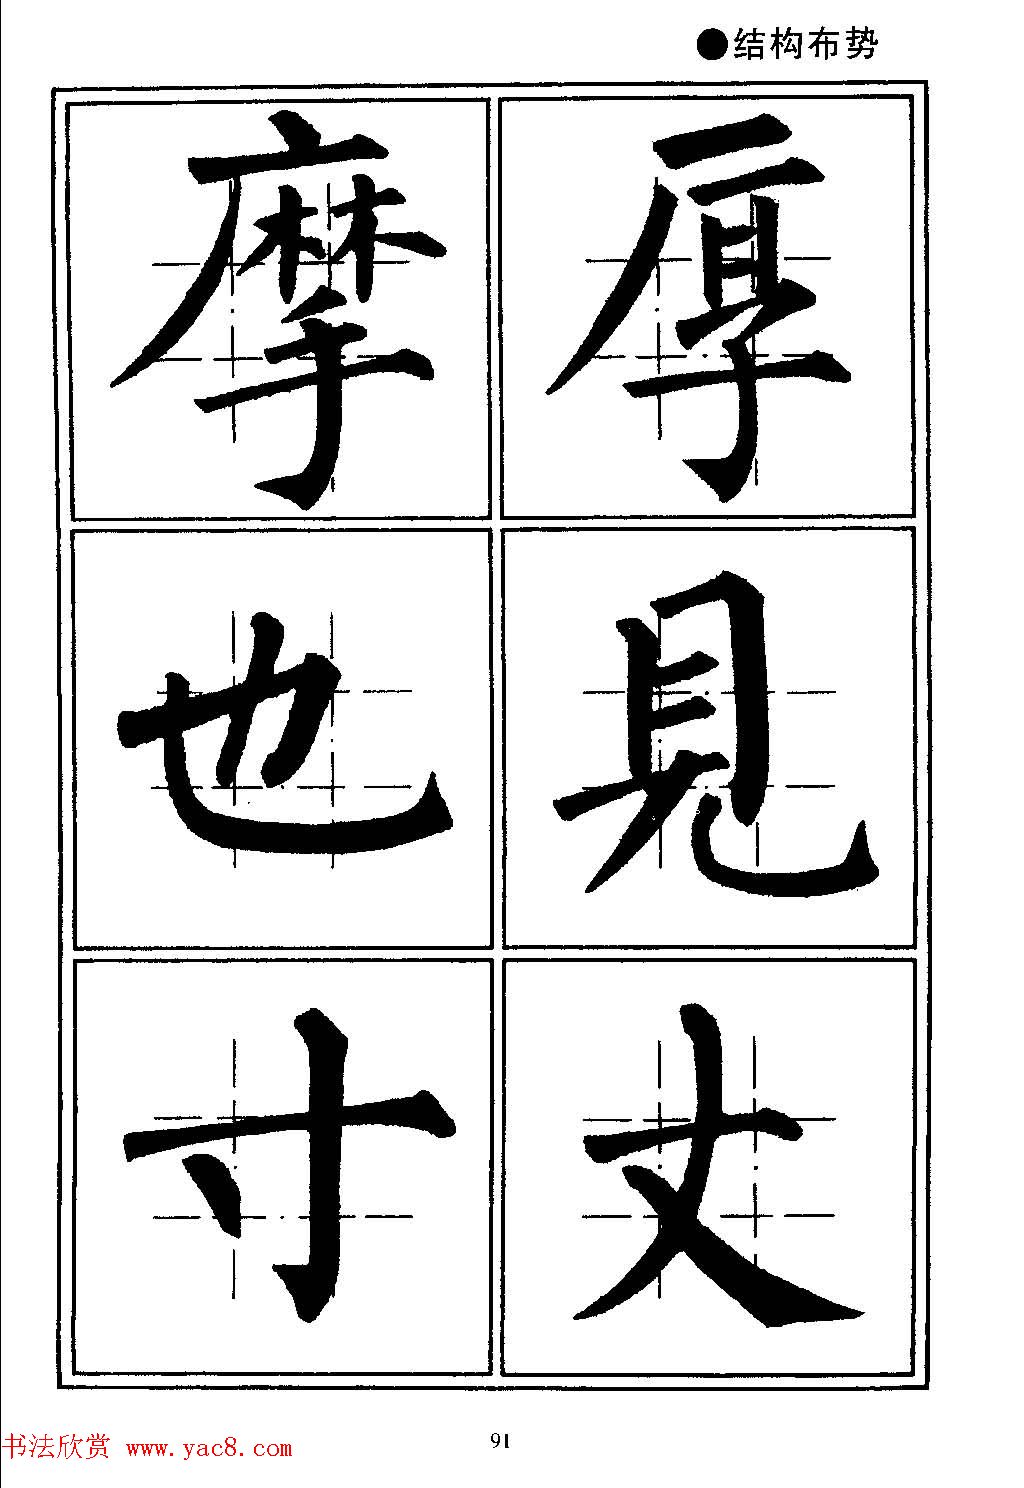 ●结构布势
厚摩
見也
丈寸
书法欣赏 www.yac8.com
91